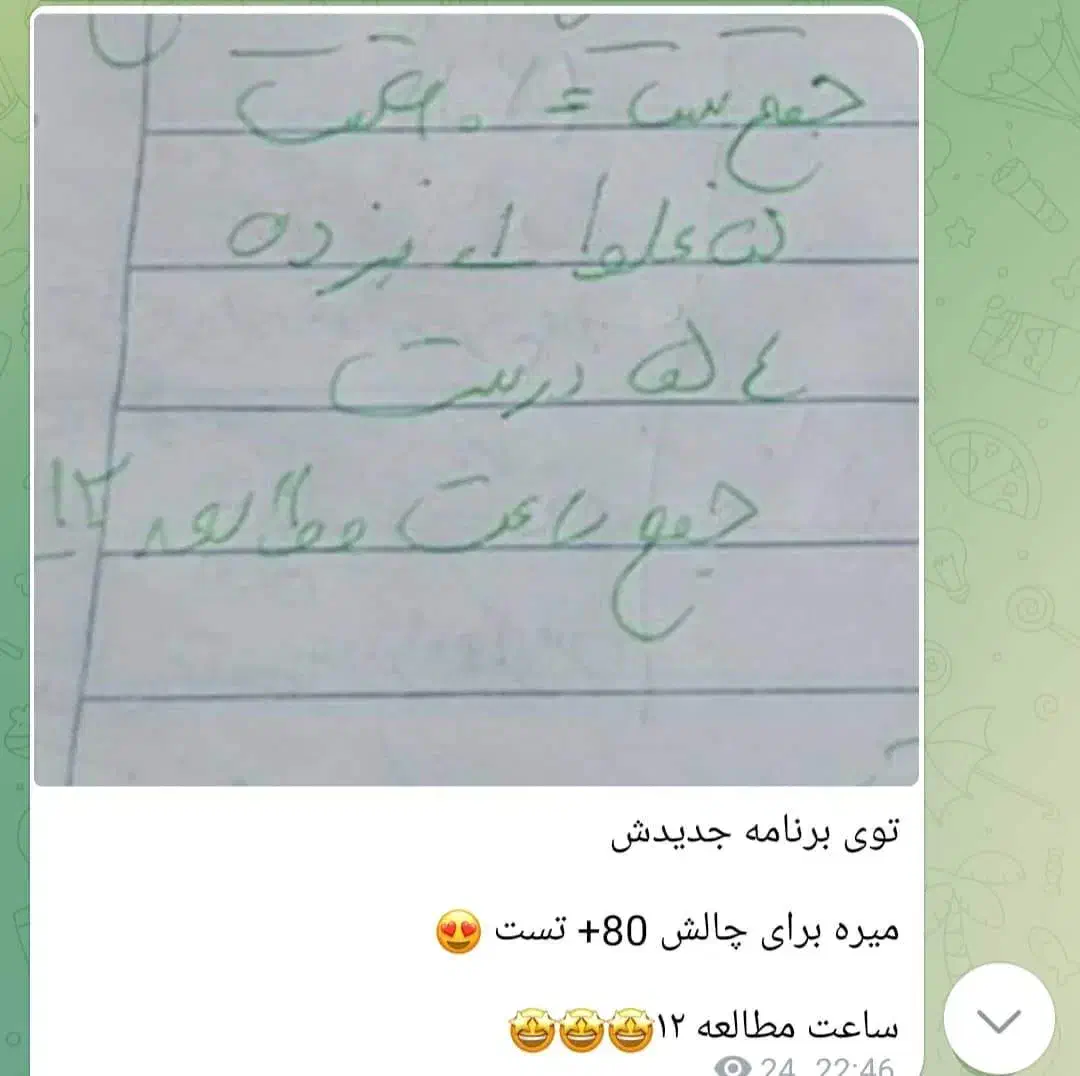 جمع تست = ۶۰ تست
۵ غلط ۱ نزده
۵۴ درست
جمع ساعت مطالعه ۱۲
توی برنامه جدیدش
میره برای چالش 80+ تست 😍
ساعت مطالعه ۱۲🤩🤩🤩
24 22:46